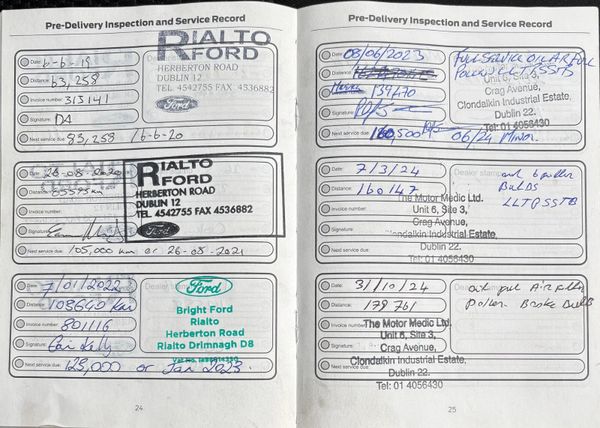 Pre-Delivery Inspection and Service Record
Date: 6-6-19
Distance: 63,258
Invoice number: 313141
Signature:
Next service due: 83,258 / 6-6-20
RIALTO
FORD
HERBERTON ROAD
DUBLIN 12
TEL 4542755 FAX 4536882
Ford
Date: 26-08-2020
Distance:
Invoice number:
Signature:
Next service due: 105,000 km or 26-08-2021
RIALTO
FORD
HERBERTON ROAD
DUBLIN 12
TEL. 4542755 FAX 4536882
Ford
Date: 7/01/2022
Distance: 108640 km
Invoice number: 801116
Signature:
Next service due: 125,000 or Jan 2023.
Ford
Bright Ford
Rialto
Herberton Road
Rialto Drimnagh D8
24
Pre-Delivery Inspection and Service Record
Date: 08/06/2023
Distance:
139470
Signature:
Next service due: 06/24
Full Service Oil Air Fuel
Pollen
Unit 6, Site 3,
Crag Avenue,
Clondalkin Industrial Estate,
Dublin 22.
Tel: 01 4056430
Date: 7/3/24
Distance: 160147
Invoice number:
Signature:
Next service due:
Dealer stamp
oil
Bulbs
The Motor Medic Ltd.
Unit 6, Site 3,
Crag Avenue,
Clondalkin Industrial Estate,
Dublin 22.
Tel: 01 4056430
Date: 31/10/24
Distance: 179761
Invoice number:
Signature:
Next service due:
Air Filter
Pollen Brake Bulbs
The Motor Medic Ltd.
Unit 6, Site 3,
Crag Avenue,
Clondalkin Industrial Estate,
Dublin 22.
Tel: 01 4056430
25